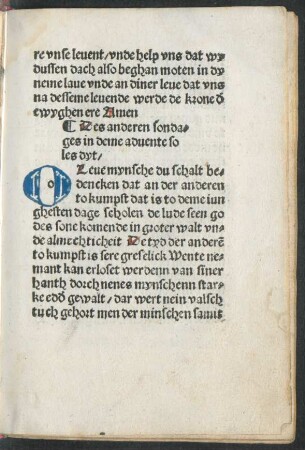 re vnse leuent/vnde help vns dat wy
dussen dach also beghan moten in dy
neme laue vnde an diner leue dat vns
na desseme leuende werde de krone d̄
ewyghen ere Amen
¶ Des anderen sonda-
ges in deme aduente so
les dyt/
O Leue mynsche du schalt be-
dencken dat an der anderen
to kumpst dat is to deme iun
ghesten dage scholen de lude seen go
des sone komende in groter walt vn-
de almechticheit De tyd der anderē
to kumpst is sere greselick Wente ne-
mant kan erloset werdenn van siner
hanth dorch nenes mynschenn star-
ke edd̓ gewalt/dar wert nein valsch
tuch gehort men der minschen samit